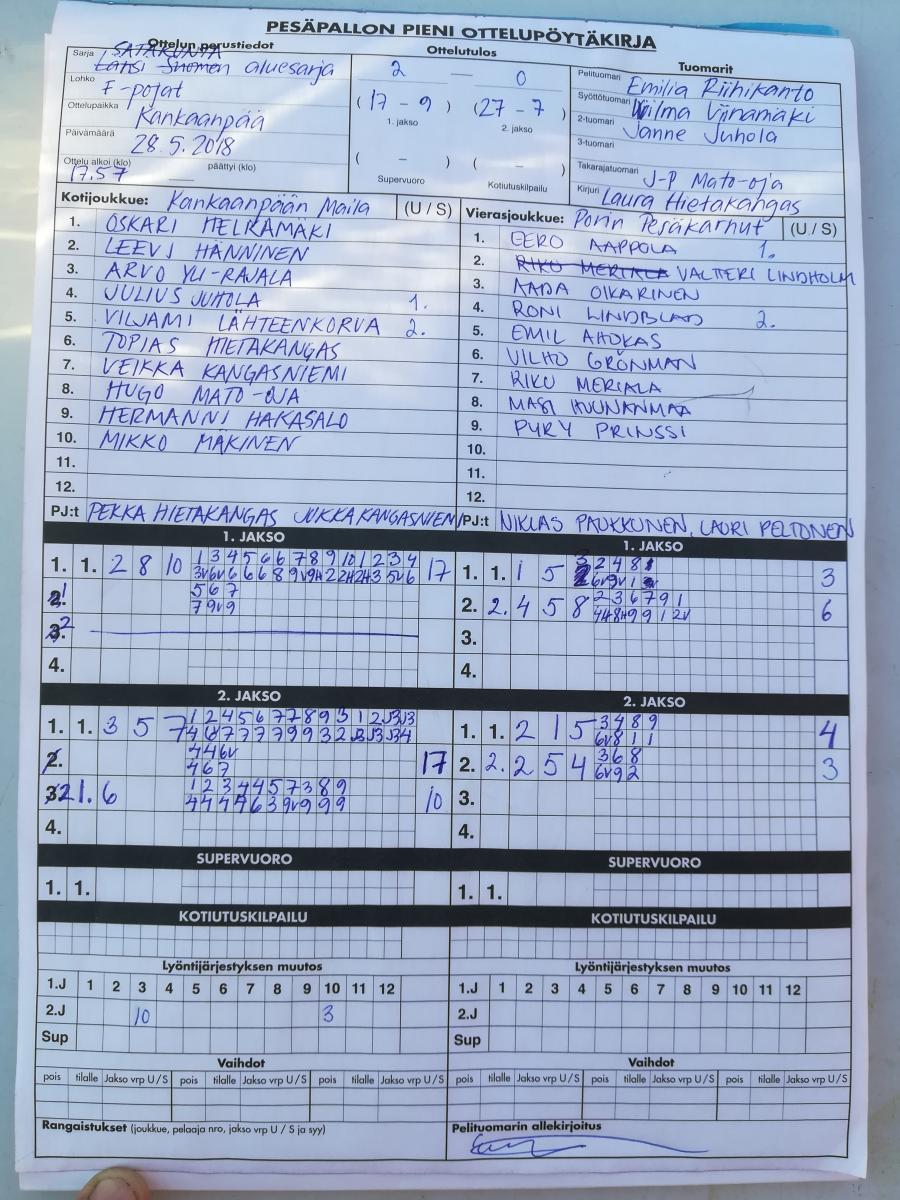 PESÄPALLON PIENI OTTELUPÖYTÄKIRJA
Ottelun perustiedot
Sarja SATAKUNTA
Länsi-Suomen aluesarja
Lohko F-pojat
Ottelupaikka Kankaanpää
Päivämäärä 28.5.2018
Ottelu alkoi (klo) 17.57 päättyi (klo)
Ottelutulos
2 — 0
(17 - 9) (27 - 7)
1. jakso 2. jakso
( - ) ( - )
Supervuoro Kotiutuskilpailu
Tuomarit
Pelituomari Emilia Riihikanto
Syöttötuomari Wilma Viinamäki
2-tuomari Janne Juhola
3-tuomari
Takarajatuomari J-P Mato-oja
Kirjuri Laura Hietakangas
Kotijoukkue: Kankaanpään Maila (U / S)
1. OSKARI HELRÄMÄKI
2. LEEVI HÄNNINEN
3. ARVO YLI-RAJALA
4. JULIUS JUHOLA 1.
5. VILJAMI LÄHTEENKORVA 2.
6. TOPIAS HIETAKANGAS
7. VEIKKA KANGASNIEMI
8. HUGO MATO-OJA
9. HERMANNI HAKASALO
10. MIKKO MÄKINEN
11.
12.
PJ:t PEKKA HIETAKANGAS JUKKA KANGASNIEMI
Vierasjoukkue: Porin Pesäkarhut (U / S)
1. EERO AAPPOLA 1.
2. RIKU MERIALA VALTTERI LINDHOLM
3. AADA OIKARINEN
4. RONI LINDBLAD 2.
5. EMIL AHOKAS
6. VILHO GRÖNMAN
7. RIKU MERIALA
8. MASI HUUNANMAA
9. PYRY PRINSSI
10.
11.
12.
PJ:t NIKLAS PAUKKUNEN, LAURI PELTONEN
1. JAKSO
1. 1. 2 8 10 1 3 4 5 6 6 7 8 9 10 1 2 3 4 17
5 6 7
7 9v9
4.
1. JAKSO
1. 1. 1 5 3
2. 2. 4 5 8 2 3 6 7 9 1 6
3.
4.
2. JAKSO
1. 1. 3 5 7
4 4 6v
4 6 7 17
1. 6 1 2 3 4 4 5 7 3 8 9 10
4 4 4 4 6 3 9v 9 9 9
4.
2. JAKSO
1. 1. 2 1 5 3 4 8 9 4
6v 8 1 1
2. 2. 2 5 4 3 6 8 3
6v 9 2
3.
4.
SUPERVUORO
1. 1.
SUPERVUORO
1. 1.
KOTIUTUSKILPAILU
KOTIUTUSKILPAILU
Lyöntijärjestyksen muutos
1.J 1 2 3 4 5 6 7 8 9 10 11 12
2.J 10 3
Sup
Lyöntijärjestyksen muutos
1.J 1 2 3 4 5 6 7 8 9 10 11 12
2.J
Sup
Vaihdot
pois tilalle Jakso vrp U / S pois tilalle Jakso vrp U / S pois tilalle Jakso vrp U / S
Vaihdot
pois tilalle Jakso vrp U / S pois tilalle Jakso vrp U / S pois tilalle Jakso vrp U / S
Rangaistukset (joukkue, pelaaja nro, jakso vrp U / S ja syy)
Pelituomarin allekirjoitus